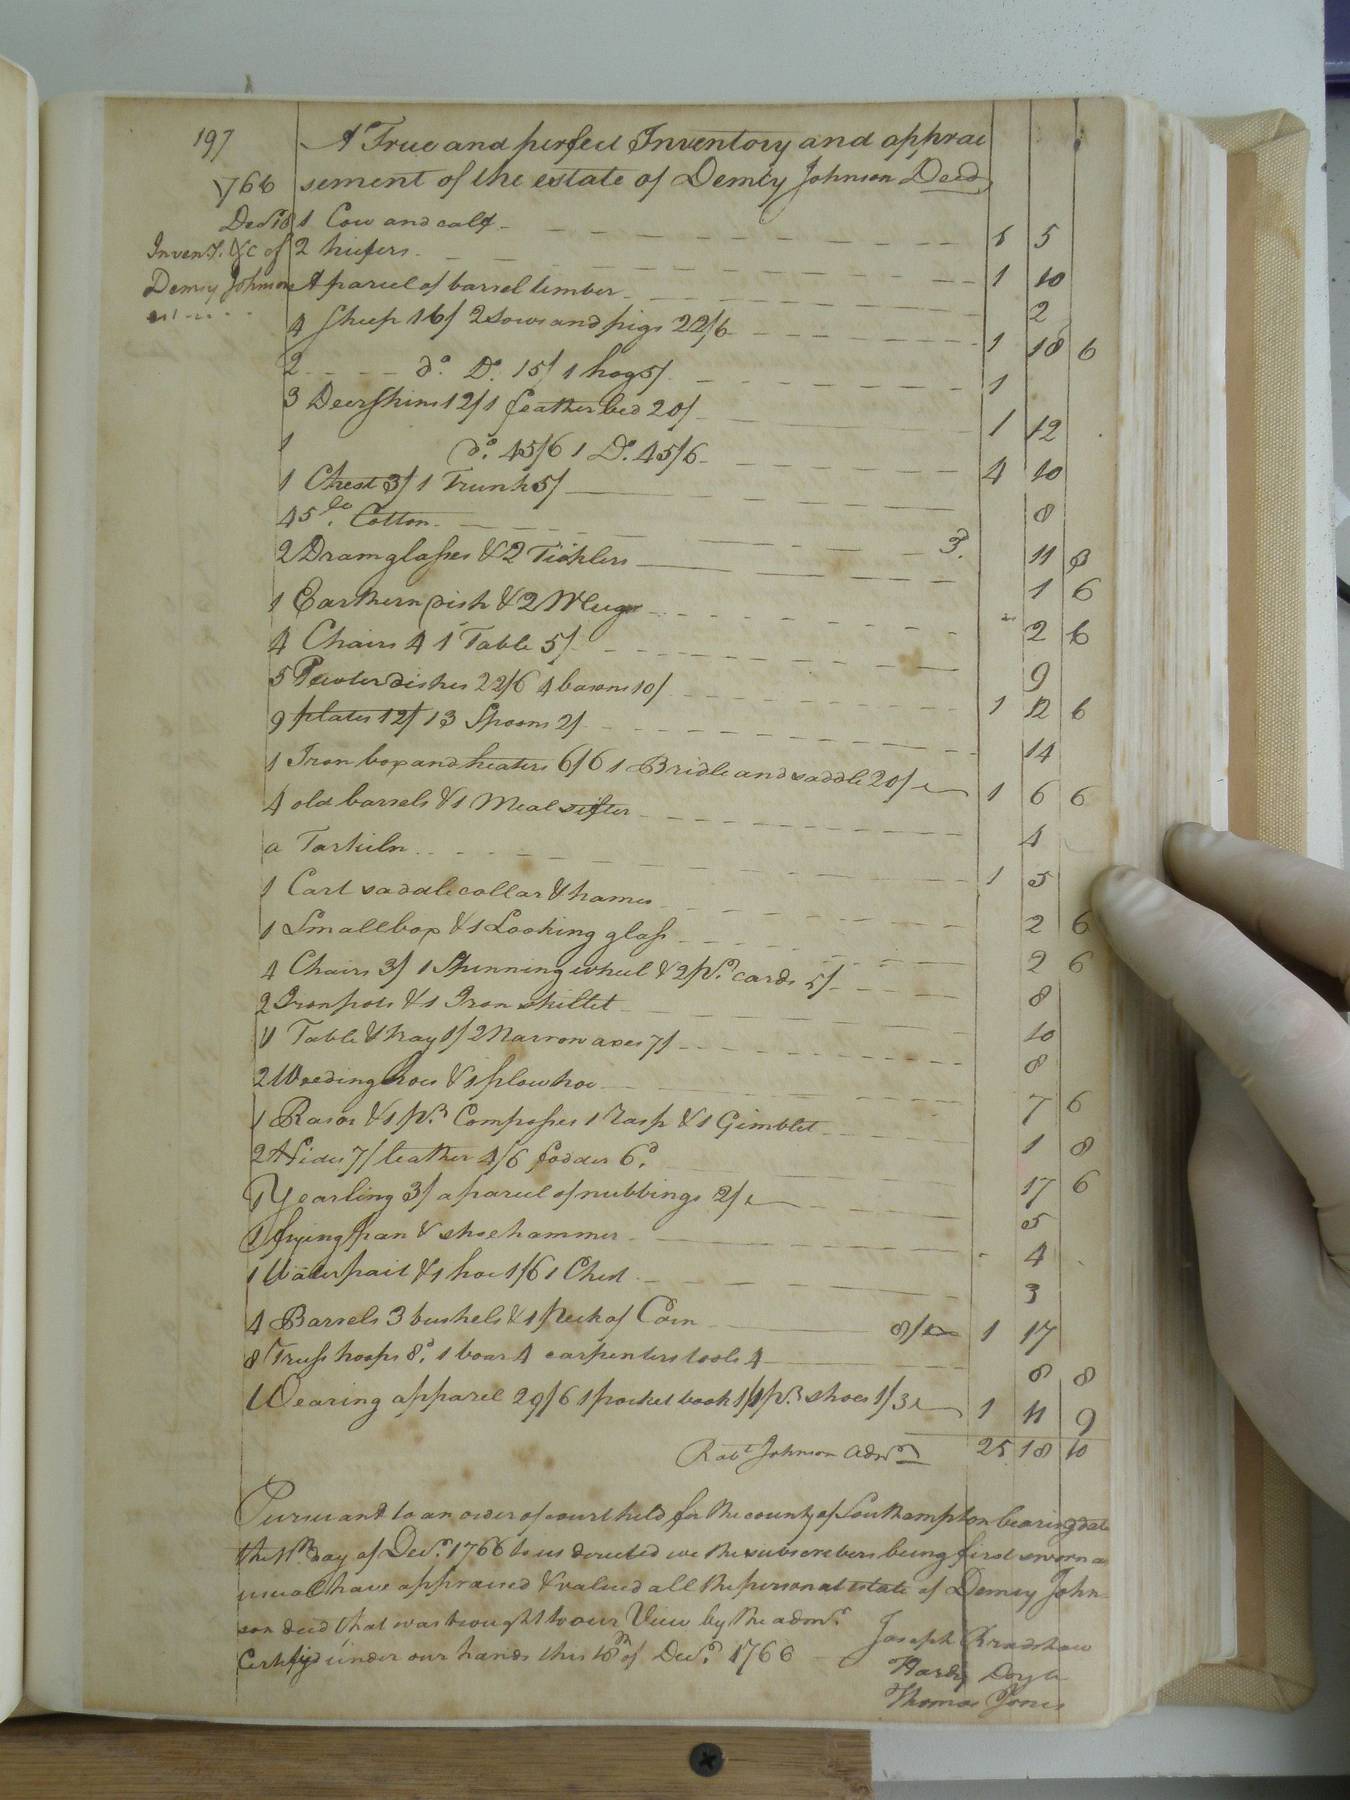 197
A True and perfect Inventory and apprai
1766 sement of the estate of Demcy Johnson Decd,
Decr 18 1 Cow and calf 1 5
Invent. &c of 2 heifers 1 10
Demcy Johnson A parcel of barrel timber 2
4 Sheep 16/ 2 Sows and pigs 22/6 1 18 6
2 do. Do. 15/ 1 hog 5/ 1
3 Deer Skins 12/ 1 feather bed 20/ 1 12
1 do. 45/6 1 Do. 45/6 4 10
1 Chest 3/ 1 Trunk 5/ 8
45 lb. Cotton 3d. 11 3
2 Dram glasses & 2 Ticklers 1 6
1 Earthern Dish & 2 Mugs 2 6
4 Chairs 4 1 Table 5/ 9
5 Pewter dishes 22/6 4 basons 10/ 1 12 6
9 plates 12/ 13 Spoons 2/ 14
1 Iron box and heaters 6/6 1 Bridle and saddle 20/ 1 6 6
4 old barrels & 1 Meal sifter 4
a Tarkiln 1 5
1 Cart saddle collar & hames 2 6
1 Small box & 1 Looking glass 2 6
4 Chairs 3/ 1 Spinning wheel & 2 pr. cards 5/ 8
2 Iron pots & 1 Iron skillet 10
1 Table & tray 1/ 2 Narrow axes 7/ 8
2 Weeding hoes & 1 plow hoe 7 6
1 Rasor & 1 pr. Compasses 1 rasp & 1 Gimblet 1 8
2 Hides 7/ leather 4/6 fodder 6d. 17 6
1 Yearling 3/ a parcel of nubbings 2/ 5
1 frying pan & shoe hammer 4
1 Water pail & 1 hoe 1/6 1 Chest 3
4 Barrels 3 bushels & 1 peck of Corn 8/ 1 17
8 Truss hoops 8d. 1 boar 4 carpenters tools 4 8 8
Wearing apparel 29/6 1 pocket book 1/ 1 pr. shoes 1/3 1 11 9
Robt Johnson admr 25 18 10
Pursuant to an order of court held for the county of Southampton bearing date
the 11th day of Decr. 1766 to us directed we the subscribers being first sworn as
usual have appraised & valued all the personal estate of Demcy John
son decd that was brought to our View by the admr.
Certifyd under our hands this 18th of Decr. 1766
Joseph Bradshaw
Hardy Doyle
Thomas Jones